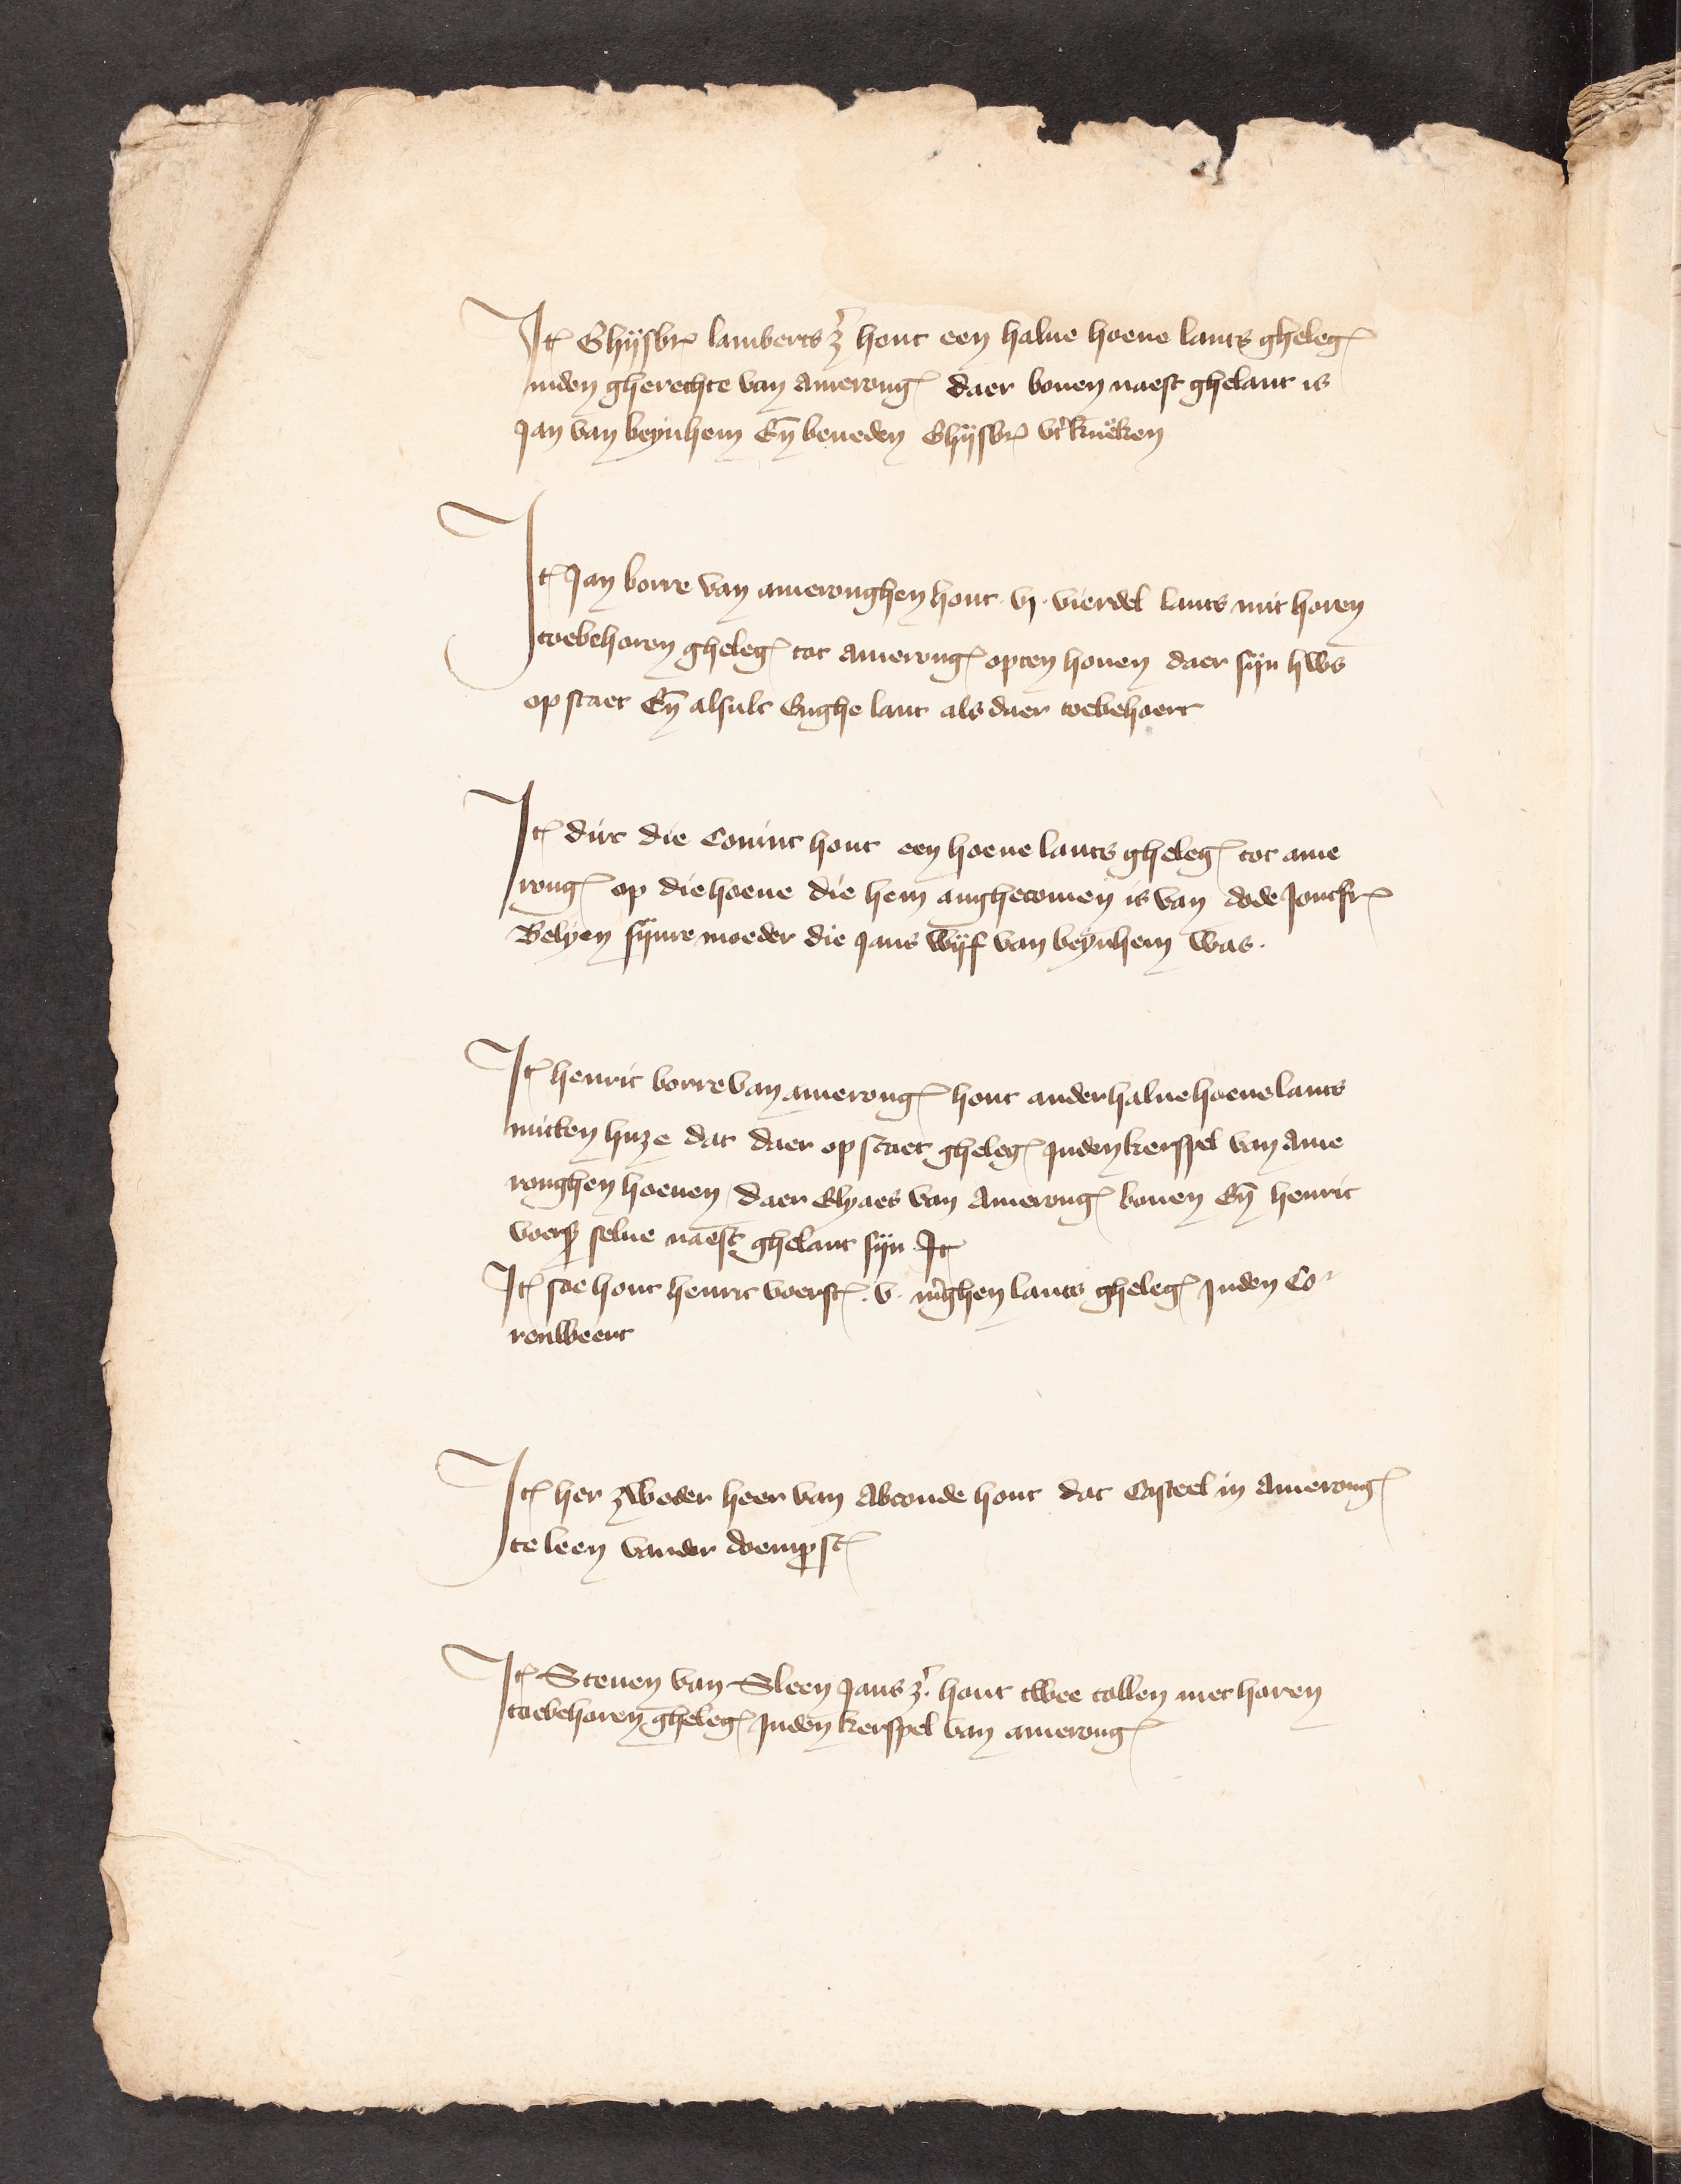 It Ghijsbr lamberts z hout een halue hoeue lants gheleg
inden gherechte van amerong daer bouen naest ghelant is
Jan van beynhem En beneden Ghijsbr
It Jan borre van ameronghen hout vj vierdel lants mit horen
toebehoren gheleg tot amerong opten houen daer sijn hws
op staet En alsulc Enghe lant als daer toebehoert
It dirc die Coninc hout een hoeue lants gheleg tot ame
rong op die hoeue die hem anghecomen is van dode Joncfr
Belyen sijnre moeder die Jans wijf van beynhem was.
It henric borre van amerong hout anderhalue hoeue lants
mitten huze dat daer op staet gheleg Inden kerspel van Ame
ronghen hoeuen daer Elyaes van Amerong bouen En henric
voers selue naest ghelant sijn It
It soe hout henric voersc . v . mghen lants gheleg Inden Co
renweert
It her zweder heer van Abconde hout dat Casteel in Amerong
te leen vander doemprst
It Steuen van Sleen Jans z. hout twee tollen met horen
toebehoren gheleg Inden kerspel van amerong